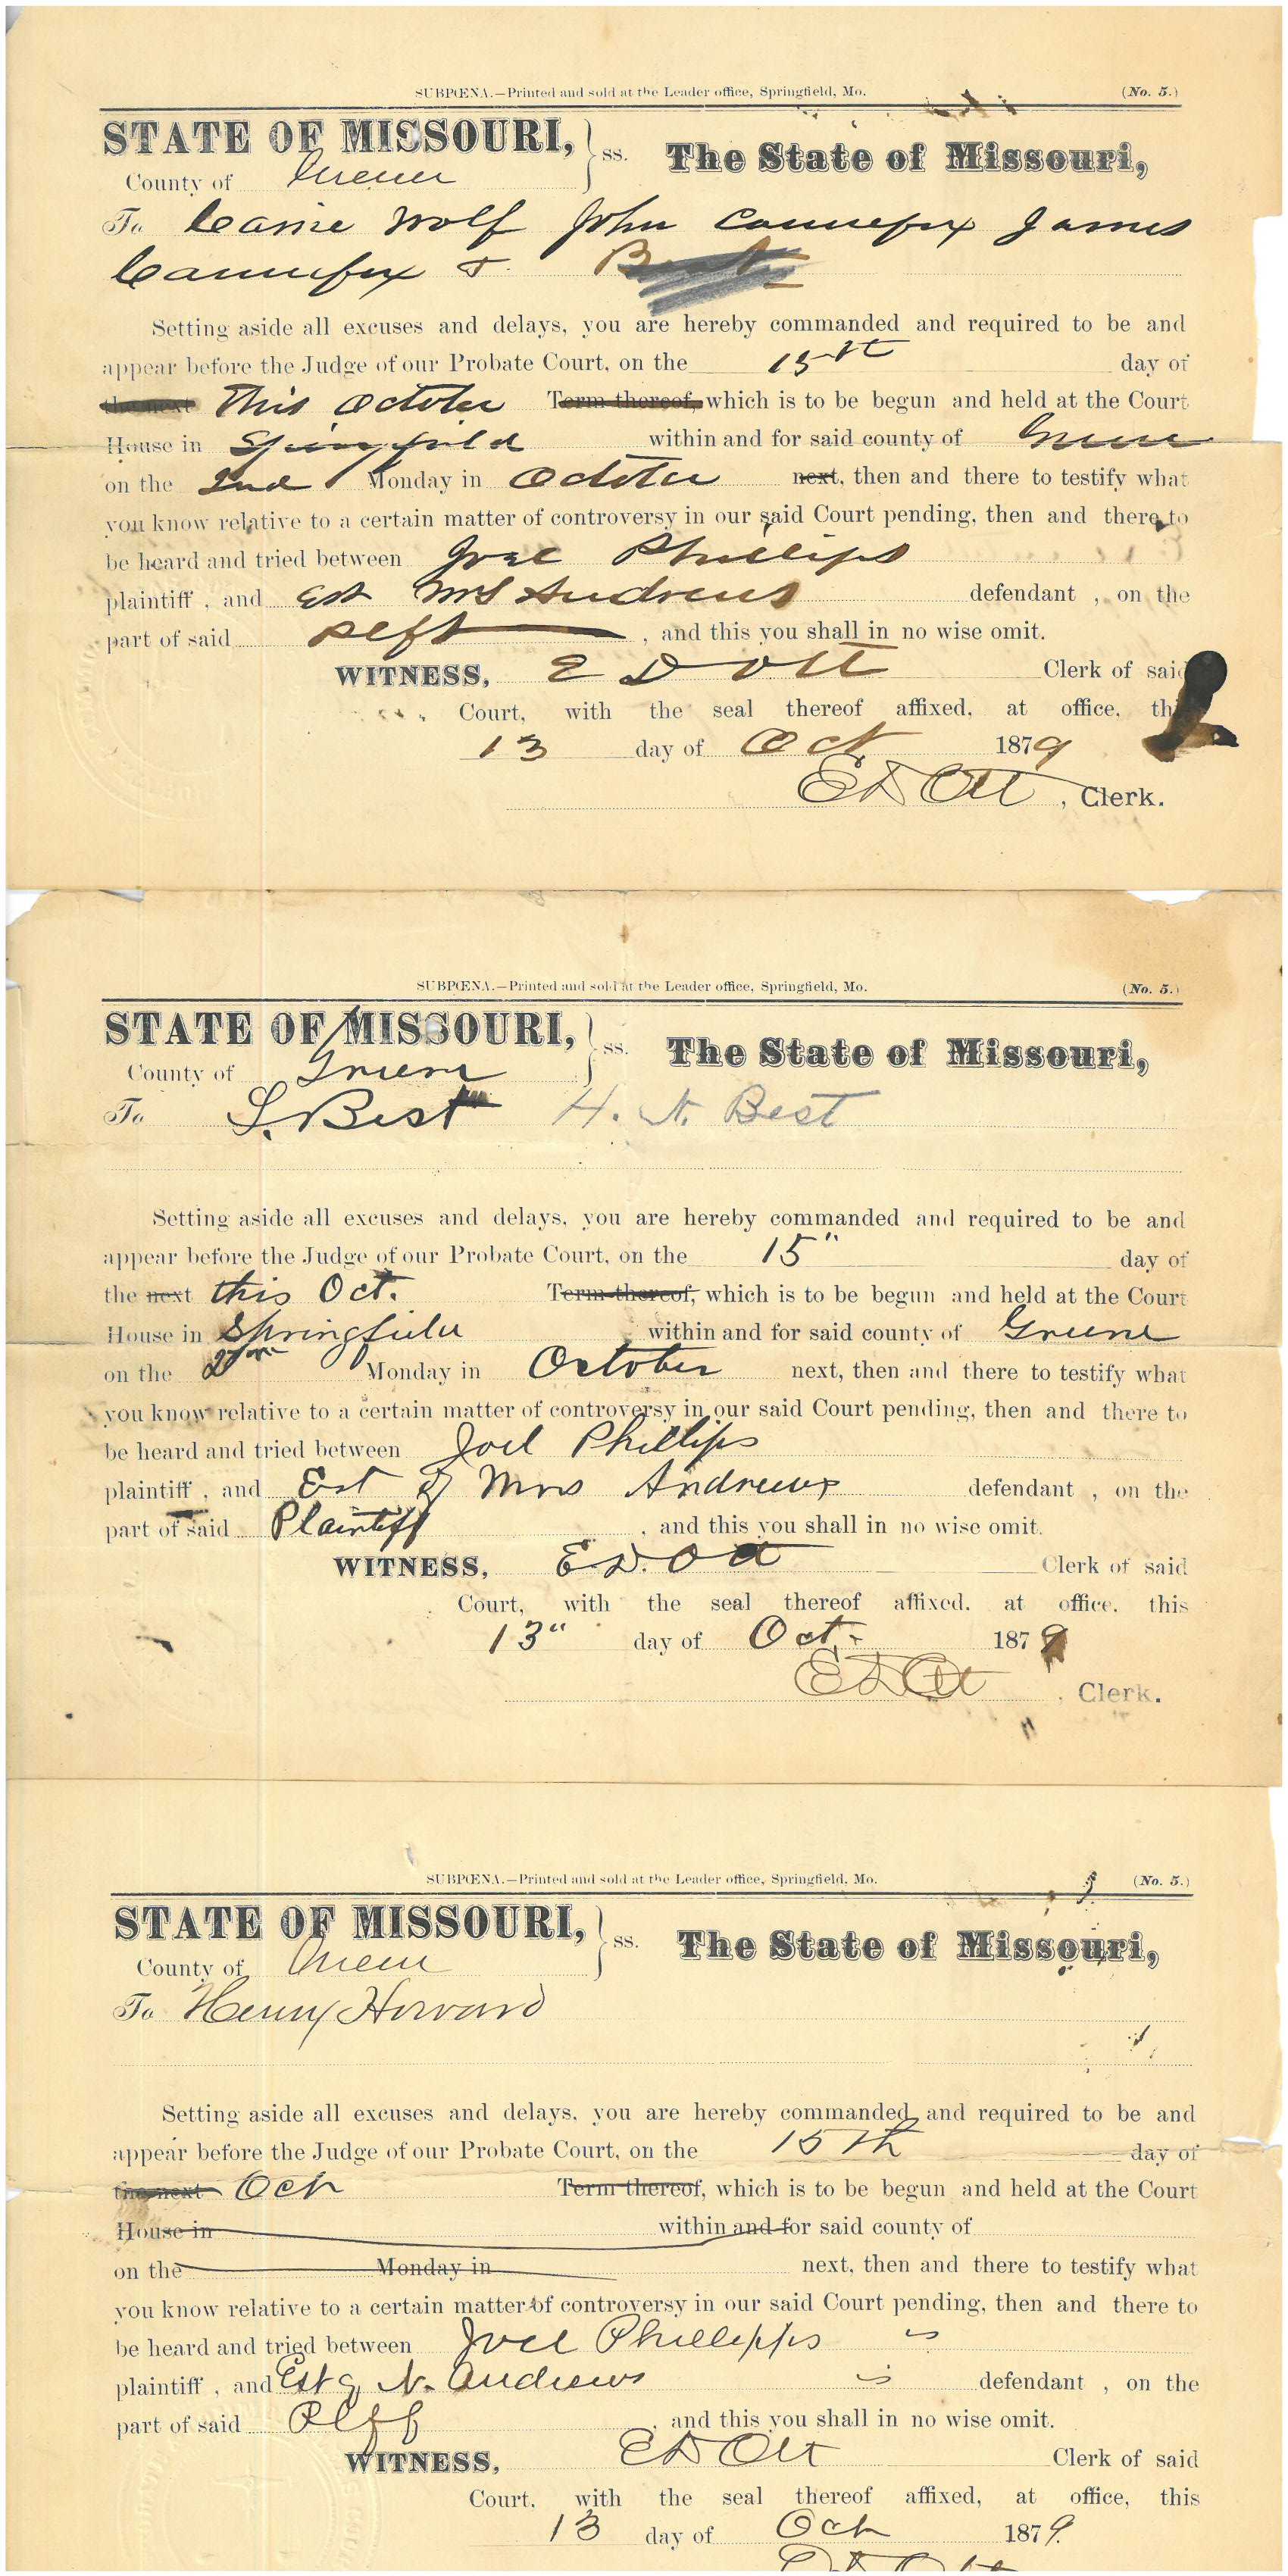 SUBPŒNA.—Printed and sold at the Leader office, Springfield, Mo. (No. 5.)
STATE OF MISSOURI, } ss. The State of Missouri,
County of Greene
To Carrie Wolf John Cannefax James
Cannefax &
Setting aside all excuses and delays, you are hereby commanded and required to be and
appear before the Judge of our Probate Court, on the 15th day of
the next This October Term thereof, which is to be begun and held at the Court
House in Springfield within and for said county of Greene
on the 2nd Monday in October next, then and there to testify what
you know relative to a certain matter of controversy in our said Court pending, then and there to
be heard and tried between Joel Phillips
plaintiff , and Est Mrs Andrews defendant , on the
part of said Plff , and this you shall in no wise omit.
WITNESS, E D Ott Clerk of said
Court, with the seal thereof affixed, at office, this
13 day of Oct 1879
E D Ott , Clerk.
SUBPŒNA.—Printed and sold at the Leader office, Springfield, Mo. (No. 5.)
STATE OF MISSOURI, } ss. The State of Missouri,
County of Greene
To S. Best H. N. Best
Setting aside all excuses and delays, you are hereby commanded and required to be and
appear before the Judge of our Probate Court, on the 15" day of
the next this Oct. Term thereof, which is to be begun and held at the Court
House in Springfield within and for said county of Greene
on the Monday in October next, then and there to testify what
you know relative to a certain matter of controversy in our said Court pending, then and there to
be heard and tried between Joel Phillips
plaintiff , and Est of Mrs Andrews defendant , on the
part of said Plaintiff , and this you shall in no wise omit.
WITNESS, E D. Ott Clerk of said
Court, with the seal thereof affixed, at office, this
13" day of Oct. 1879
E D Ott , Clerk.
SUBPŒNA.—Printed and sold at the Leader office, Springfield, Mo. (No. 5.)
STATE OF MISSOURI, } ss. The State of Missouri,
County of Greene
To Henry Howard
Setting aside all excuses and delays, you are hereby commanded and required to be and
appear before the Judge of our Probate Court, on the 15th day of
the next Oct Term thereof, which is to be begun and held at the Court
House in within and for said county of
on the Monday in next, then and there to testify what
you know relative to a certain matter of controversy in our said Court pending, then and there to
be heard and tried between Joel Phillipps
plaintiff , and Est of N. Andrews defendant , on the
part of said Plff , and this you shall in no wise omit.
WITNESS, E D Ott Clerk of said
Court, with the seal thereof affixed, at office, this
13 day of Oct 1879.